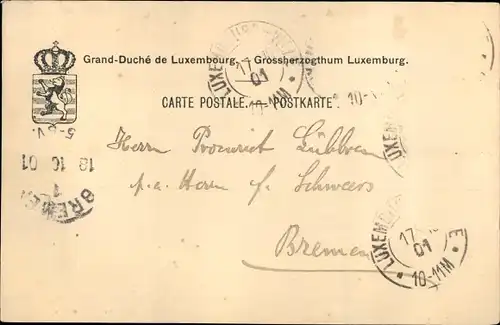 Grand-Duché de Luxembourg. – Grossherzogthum Luxemburg.
CARTE POSTALE. — POSTKARTE.
LUXEMBOURG
17
01
10-11M
10-1
LUXEM
5-6V.
18 10 01
1
BREMEN
Herrn Procurist Lübbren
p. a. Herrn f. Schweers
Bremen
LUXEMB E
17
01
10-11M